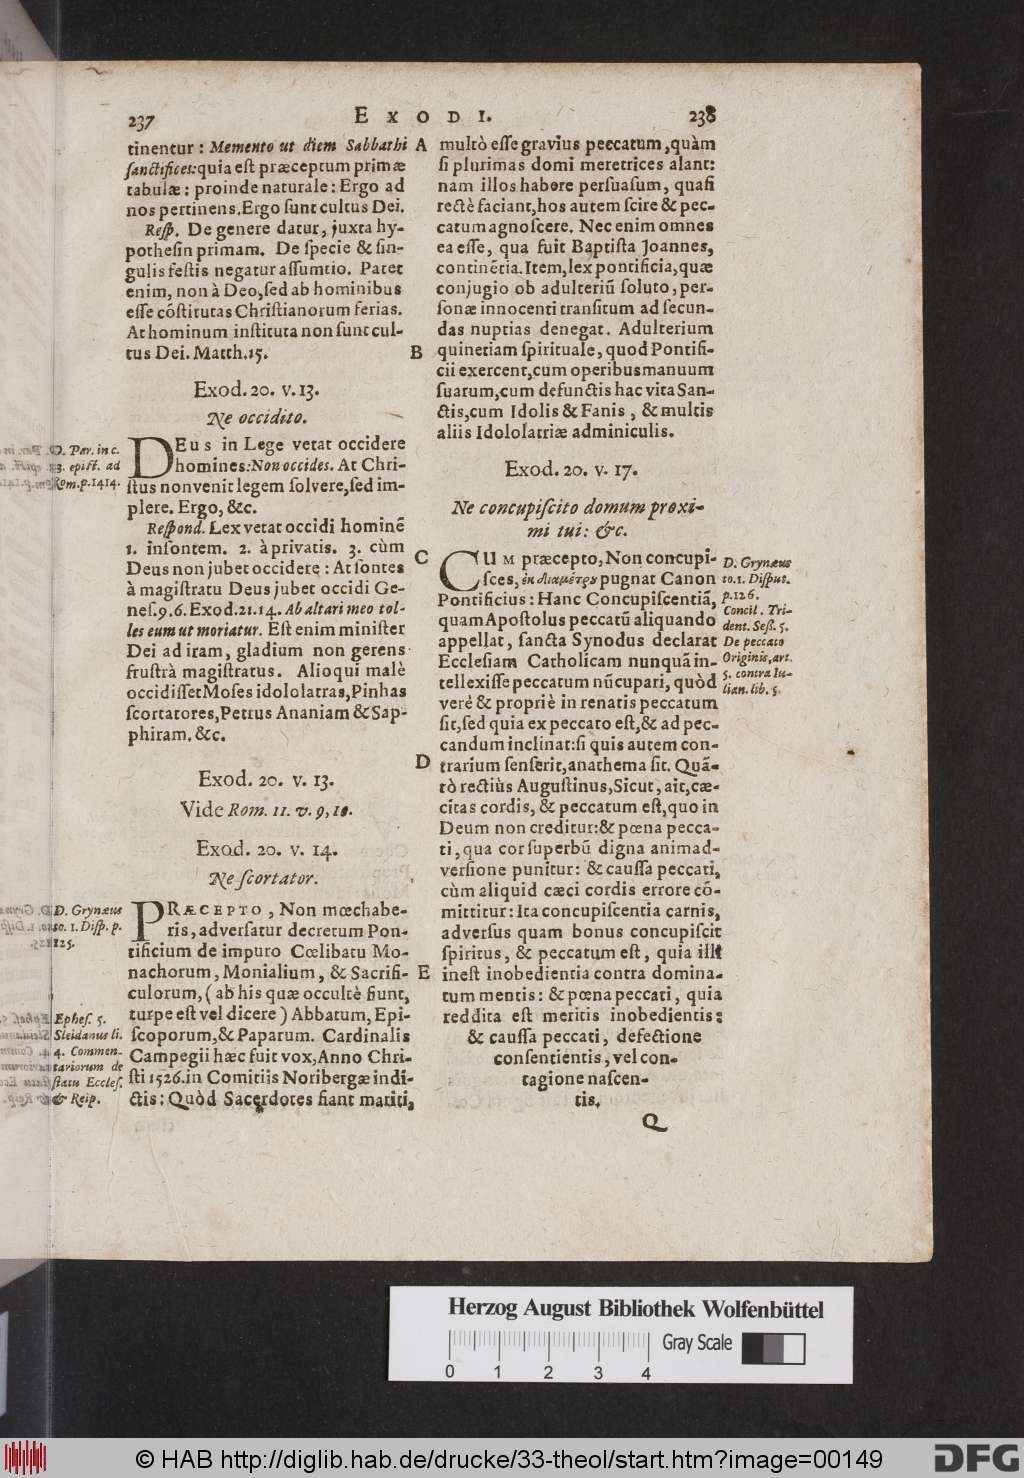 237
EXODI.
238
tinentur: Memento ut diem Sabbathi
sanctifices: quia est præceptum primæ
tabulæ: proinde naturale: Ergo ad
nos pertinens. Ergo sunt cultus Dei.
Resp. De genere datur, juxta hy-
pothesin primam. De specie & sin-
gulis festis negatur assumtio. Patet
enim, non à Deo, sed ab hominibus
esse cõstitutas Christianorum ferias.
At hominum instituta non sunt cul-
tus Dei. Matth. 15.
Exod. 20. v. 13.
Ne occidito.
D. Par. in c.
3. epist. ad
Rom. p. 1414.
DEus in Lege vetat occidere
homines: Non occides. At Chri-
stus non venit legem solvere, sed im-
plere. Ergo, &c.
Respond. Lex vetat occidi hominẽ
1. insontem. 2. à privatis. 3. cùm
Deus non jubet occidere: At sontes
à magistratu Deus jubet occidi Ge-
nes. 9. 6. Exod. 21. 14. Ab altari meo tol-
les eum ut moriatur. Est enim minister
Dei ad iram, gladium non gerens
frustrà magistratus. Alioqui malè
occidisset Moses idololatras, Pinhas
scortatores, Petrus Ananiam & Sap-
phiram. &c.
Exod. 20. v. 13.
Vide Rom. 11. v. 9, 10.
Exod. 20. v. 14.
Ne scortator.
D. Grynæus
to. 1. Disp. p.
125.
PRÆCEPTO, Non mœchabe-
ris, adversatur decretum Pon-
tificium de impuro Cœlibatu Mo-
nachorum, Monialium, & Sacrifi-
culorum, (ab his quæ occultè fiunt,
turpe est vel dicere) Abbatum, Epi-
scoporum, & Paparum. Cardinalis
Campegii hæc fuit vox, Anno Chri-
sti 1526. in Comitiis Noribergæ indi-
ctis: Quòd Sacerdotes fiant mariti,
Ephes. 5.
Sleidanus li.
4. Commen-
tariorum de
statu Eccles.
& Reip.
A
B
C
D
E
multò esse gravius peccatum, quàm
si plurimas domi meretrices alant:
nam illos habere persuasum, quasi
rectè faciant, hos autem scire & pec-
catum agnoscere. Nec enim omnes
ea esse, qua fuit Baptista Joannes,
continẽtia. Item, lex pontificia, quæ
conjugio ob adulteriũ soluto, per-
sonæ innocenti transitum ad secun-
das nuptias denegat. Adulterium
quinetiam spirituale, quod Pontifi-
cii exercent, cum operibus manuum
suarum, cum defunctis hac vita San-
ctis, cum Idolis & Fanis, & multis
aliis Idololatriæ adminiculis.
Exod. 20. v. 17.
Ne concupiscito domum proxi-
mi tui: &c.
CUM præcepto, Non concupi-
sces, ἐκ διαμέτρου pugnat Canon
Pontificius: Hanc Concupiscentiã,
quam Apostolus peccatũ aliquando
appellat, sancta Synodus declarat
Ecclesiam Catholicam nunquã in-
tellexisse peccatum nũcupari, quòd
verè & propriè in renatis peccatum
sit, sed quia ex peccato est, & ad pec-
candum inclinat: si quis autem con-
trarium senserit, anathema sit. Quã-
tò rectiùs Augustinus, Sicut, ait, cæ-
citas cordis, & peccatum est, quo in
Deum non creditur: & pœna pecca-
ti, qua cor superbũ digna animad-
versione punitur: & caussa peccati,
cùm aliquid cæci cordis errore cõ-
mittitur: Ita concupiscentia carnis,
adversus quam bonus concupiscit
spiritus, & peccatum est, quia illi
inest inobedientia contra domina-
tum mentis: & pœna peccati, quia
reddita est meritis inobedientis:
& caussa peccati, defectione
consentientis, vel con-
tagione nascen-
tis.
D. Grynæus
to. 1. Disput.
p. 126.
Concil. Tri-
dent. Seß. 5.
De peccato
Originis, art.
5. contra Iu-
lian. lib. 5.
Q
Herzog August Bibliothek Wolfenbüttel
Gray Scale
0 1 2 3 4
© HAB http://diglib.hab.de/drucke/33-theol/start.htm?image=00149
DFG